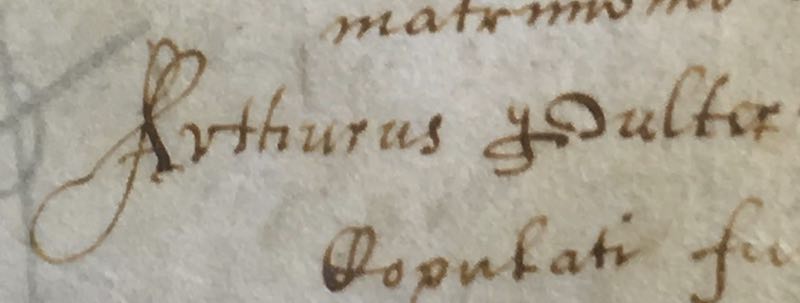 matrimonio
Arthurus Pulter
Copulati fu